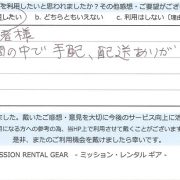 を利用したいと思われましたか？その他感想・ご要望がござ
したい　b. どちらともいえない　c. 利用はしない（理由
者様
の中で手配、配送ありが
ました。戴いたご感想・意見を大切に今後のサービス向上に活
になる方への参考の為、当HP上で利用させて戴くことがございます
是非、またのご利用機会を戴けましたら幸いです。
SSION RENTAL GEAR - ミッション・レンタル ギア -